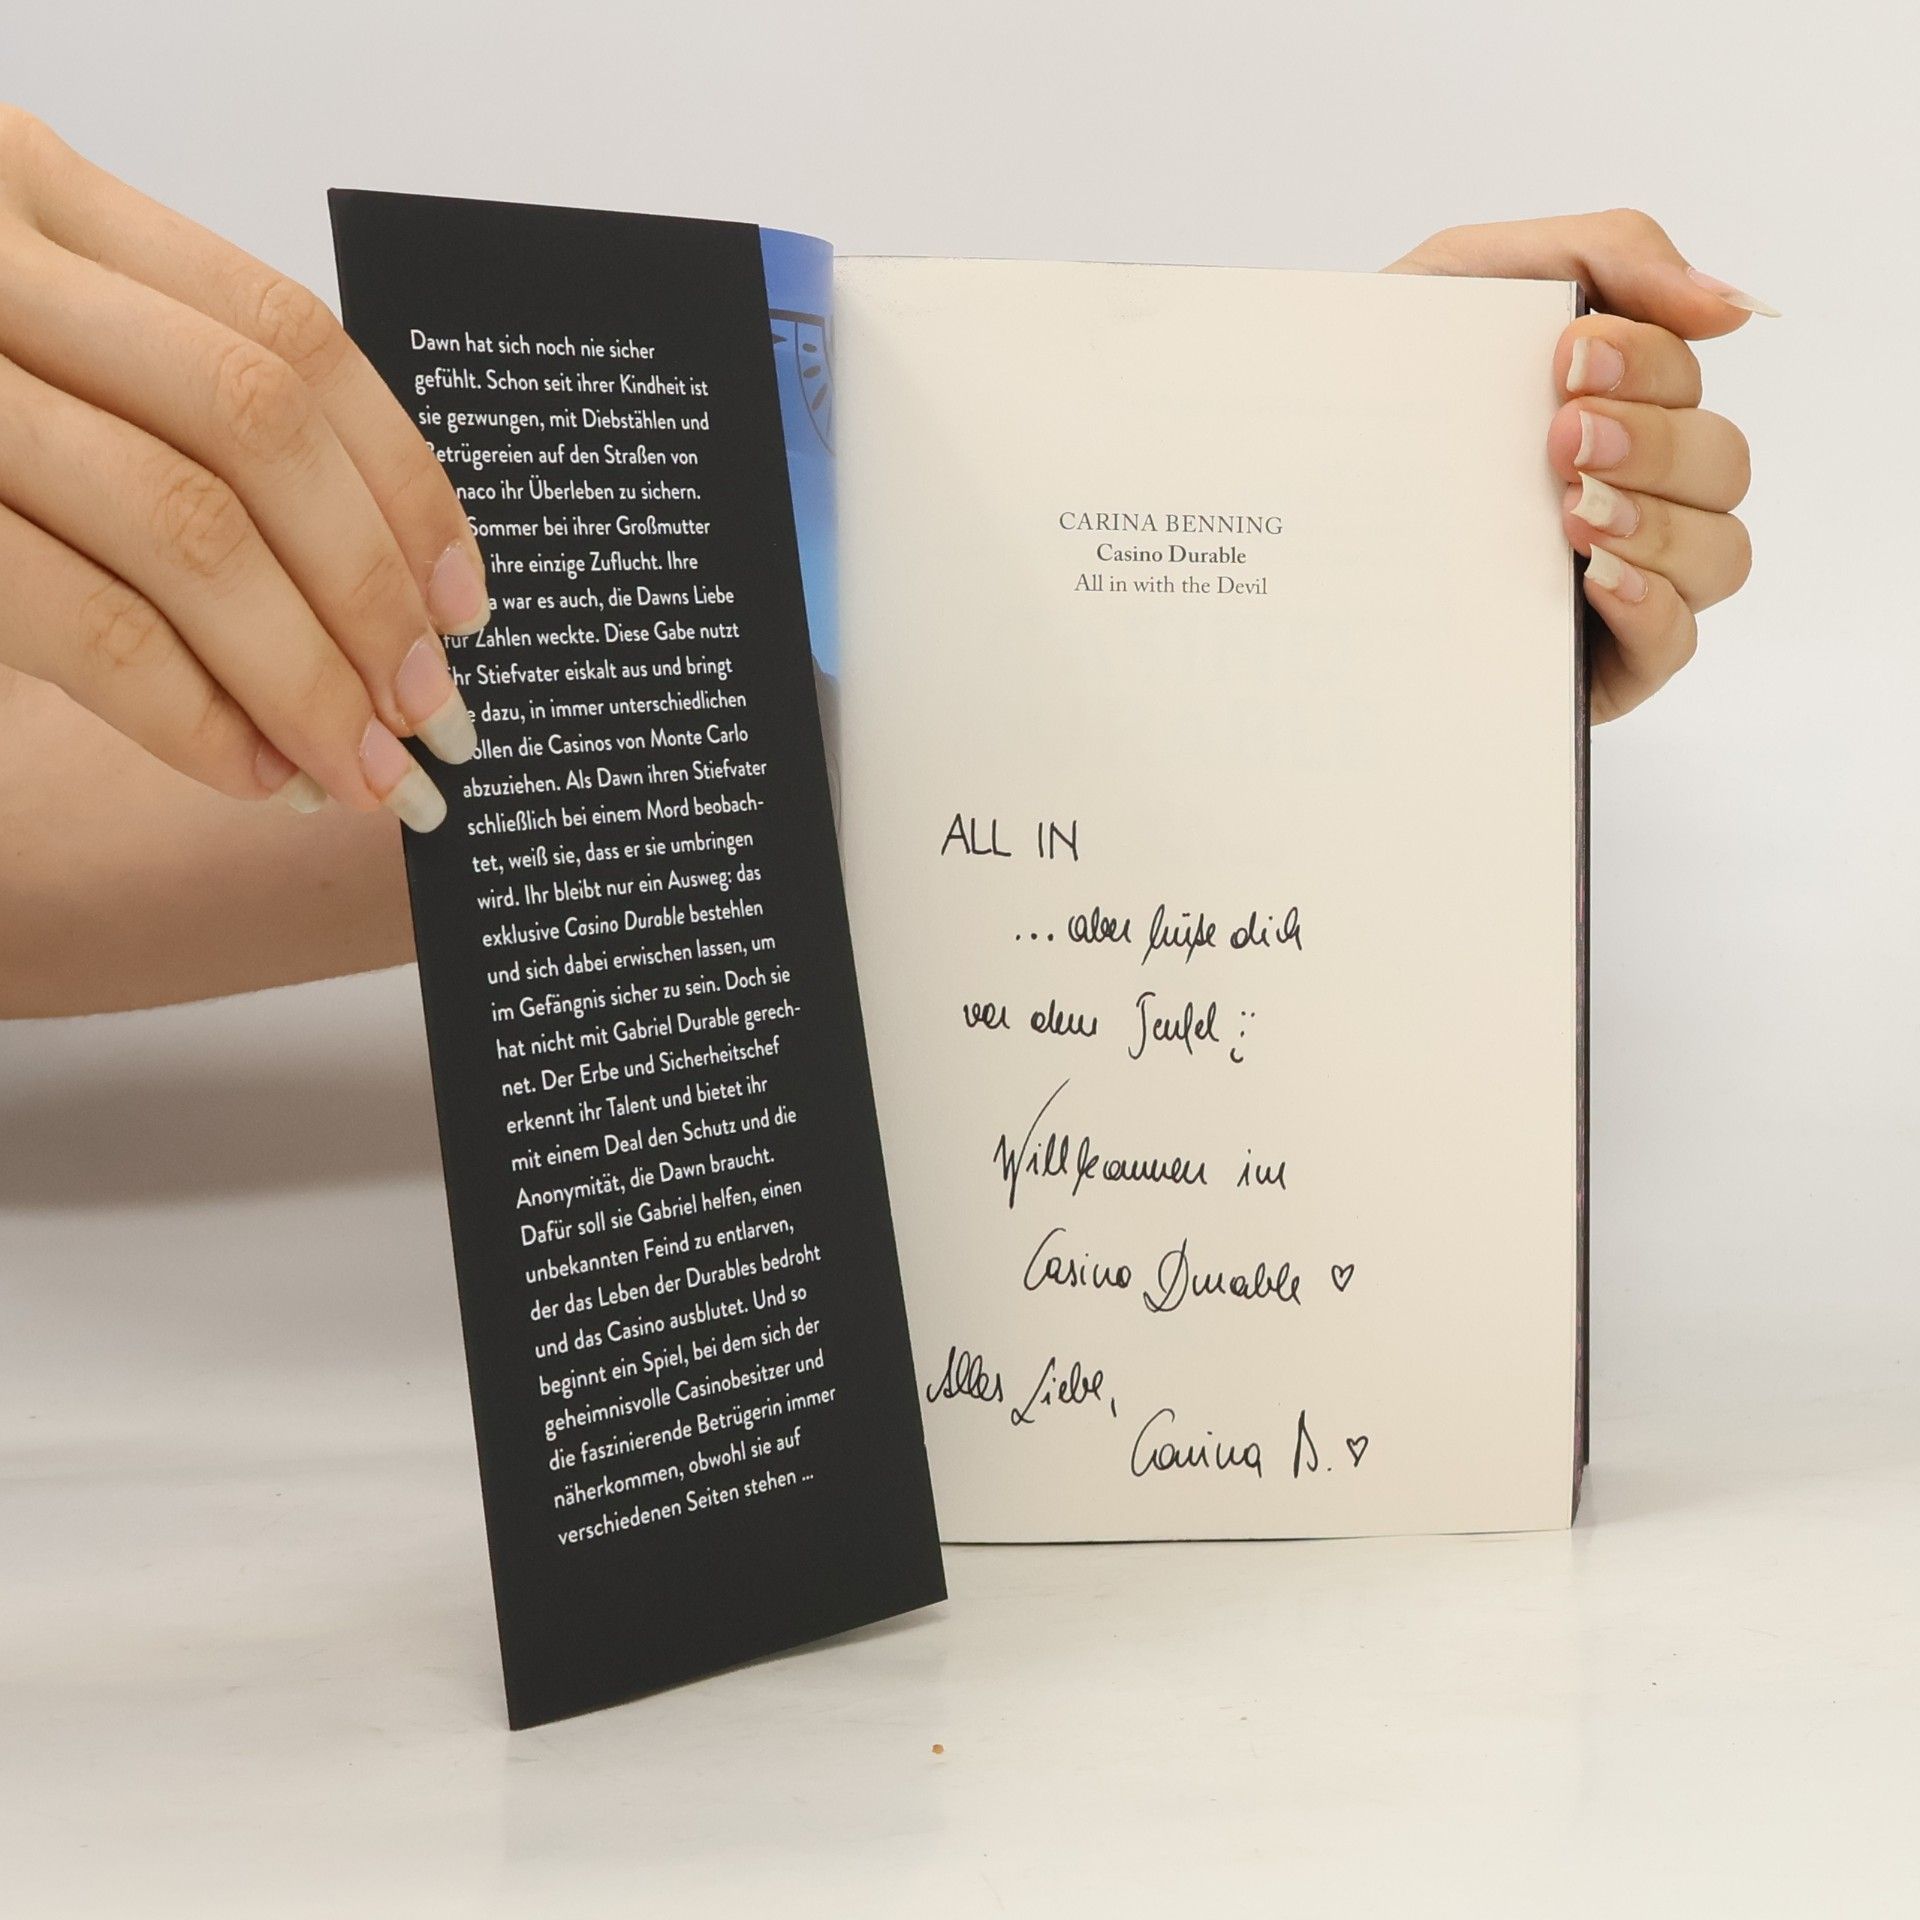 Dawn hat sich noch nie sicher
gefühlt. Schon seit ihrer Kindheit ist
sie gezwungen, mit Diebstählen und
etrügereien auf den Straßen von
naco ihr Überleben zu sichern.
Sommer bei ihrer Großmutter
ihre einzige Zuflucht. Ihre
a war es auch, die Dawns Liebe
für Zahlen weckte. Diese Gabe nutzt
ihr Stiefvater eiskalt aus und bringt
e dazu, in immer unterschiedlichen
ollen die Casinos von Monte Carlo
abzuziehen. Als Dawn ihren Stiefvater
schließlich bei einem Mord beobach-
tet, weiß sie, dass er sie umbringen
wird. Ihr bleibt nur ein Ausweg: das
exklusive Casino Durable bestehlen
und sich dabei erwischen lassen, um
im Gefängnis sicher zu sein. Doch sie
hat nicht mit Gabriel Durable gerech-
net. Der Erbe und Sicherheitschef
erkennt ihr Talent und bietet ihr
mit einem Deal den Schutz und die
Anonymität, die Dawn braucht.
Dafür soll sie Gabriel helfen, einen
unbekannten Feind zu entlarven,
der das Leben der Durables bedroht
und das Casino ausblutet. Und so
beginnt ein Spiel, bei dem sich der
geheimnisvolle Casinobesitzer und
die faszinierende Betrügerin immer
näherkommen, obwohl sie auf
verschiedenen Seiten stehen ...
CARINA BENNING
Casino Durable
All in with the Devil
ALL IN
... aber hüte dich
vor dem Teufel ;)
Willkommen im
Casino Durable ♡
Alles Liebe,
Carina B. ♡